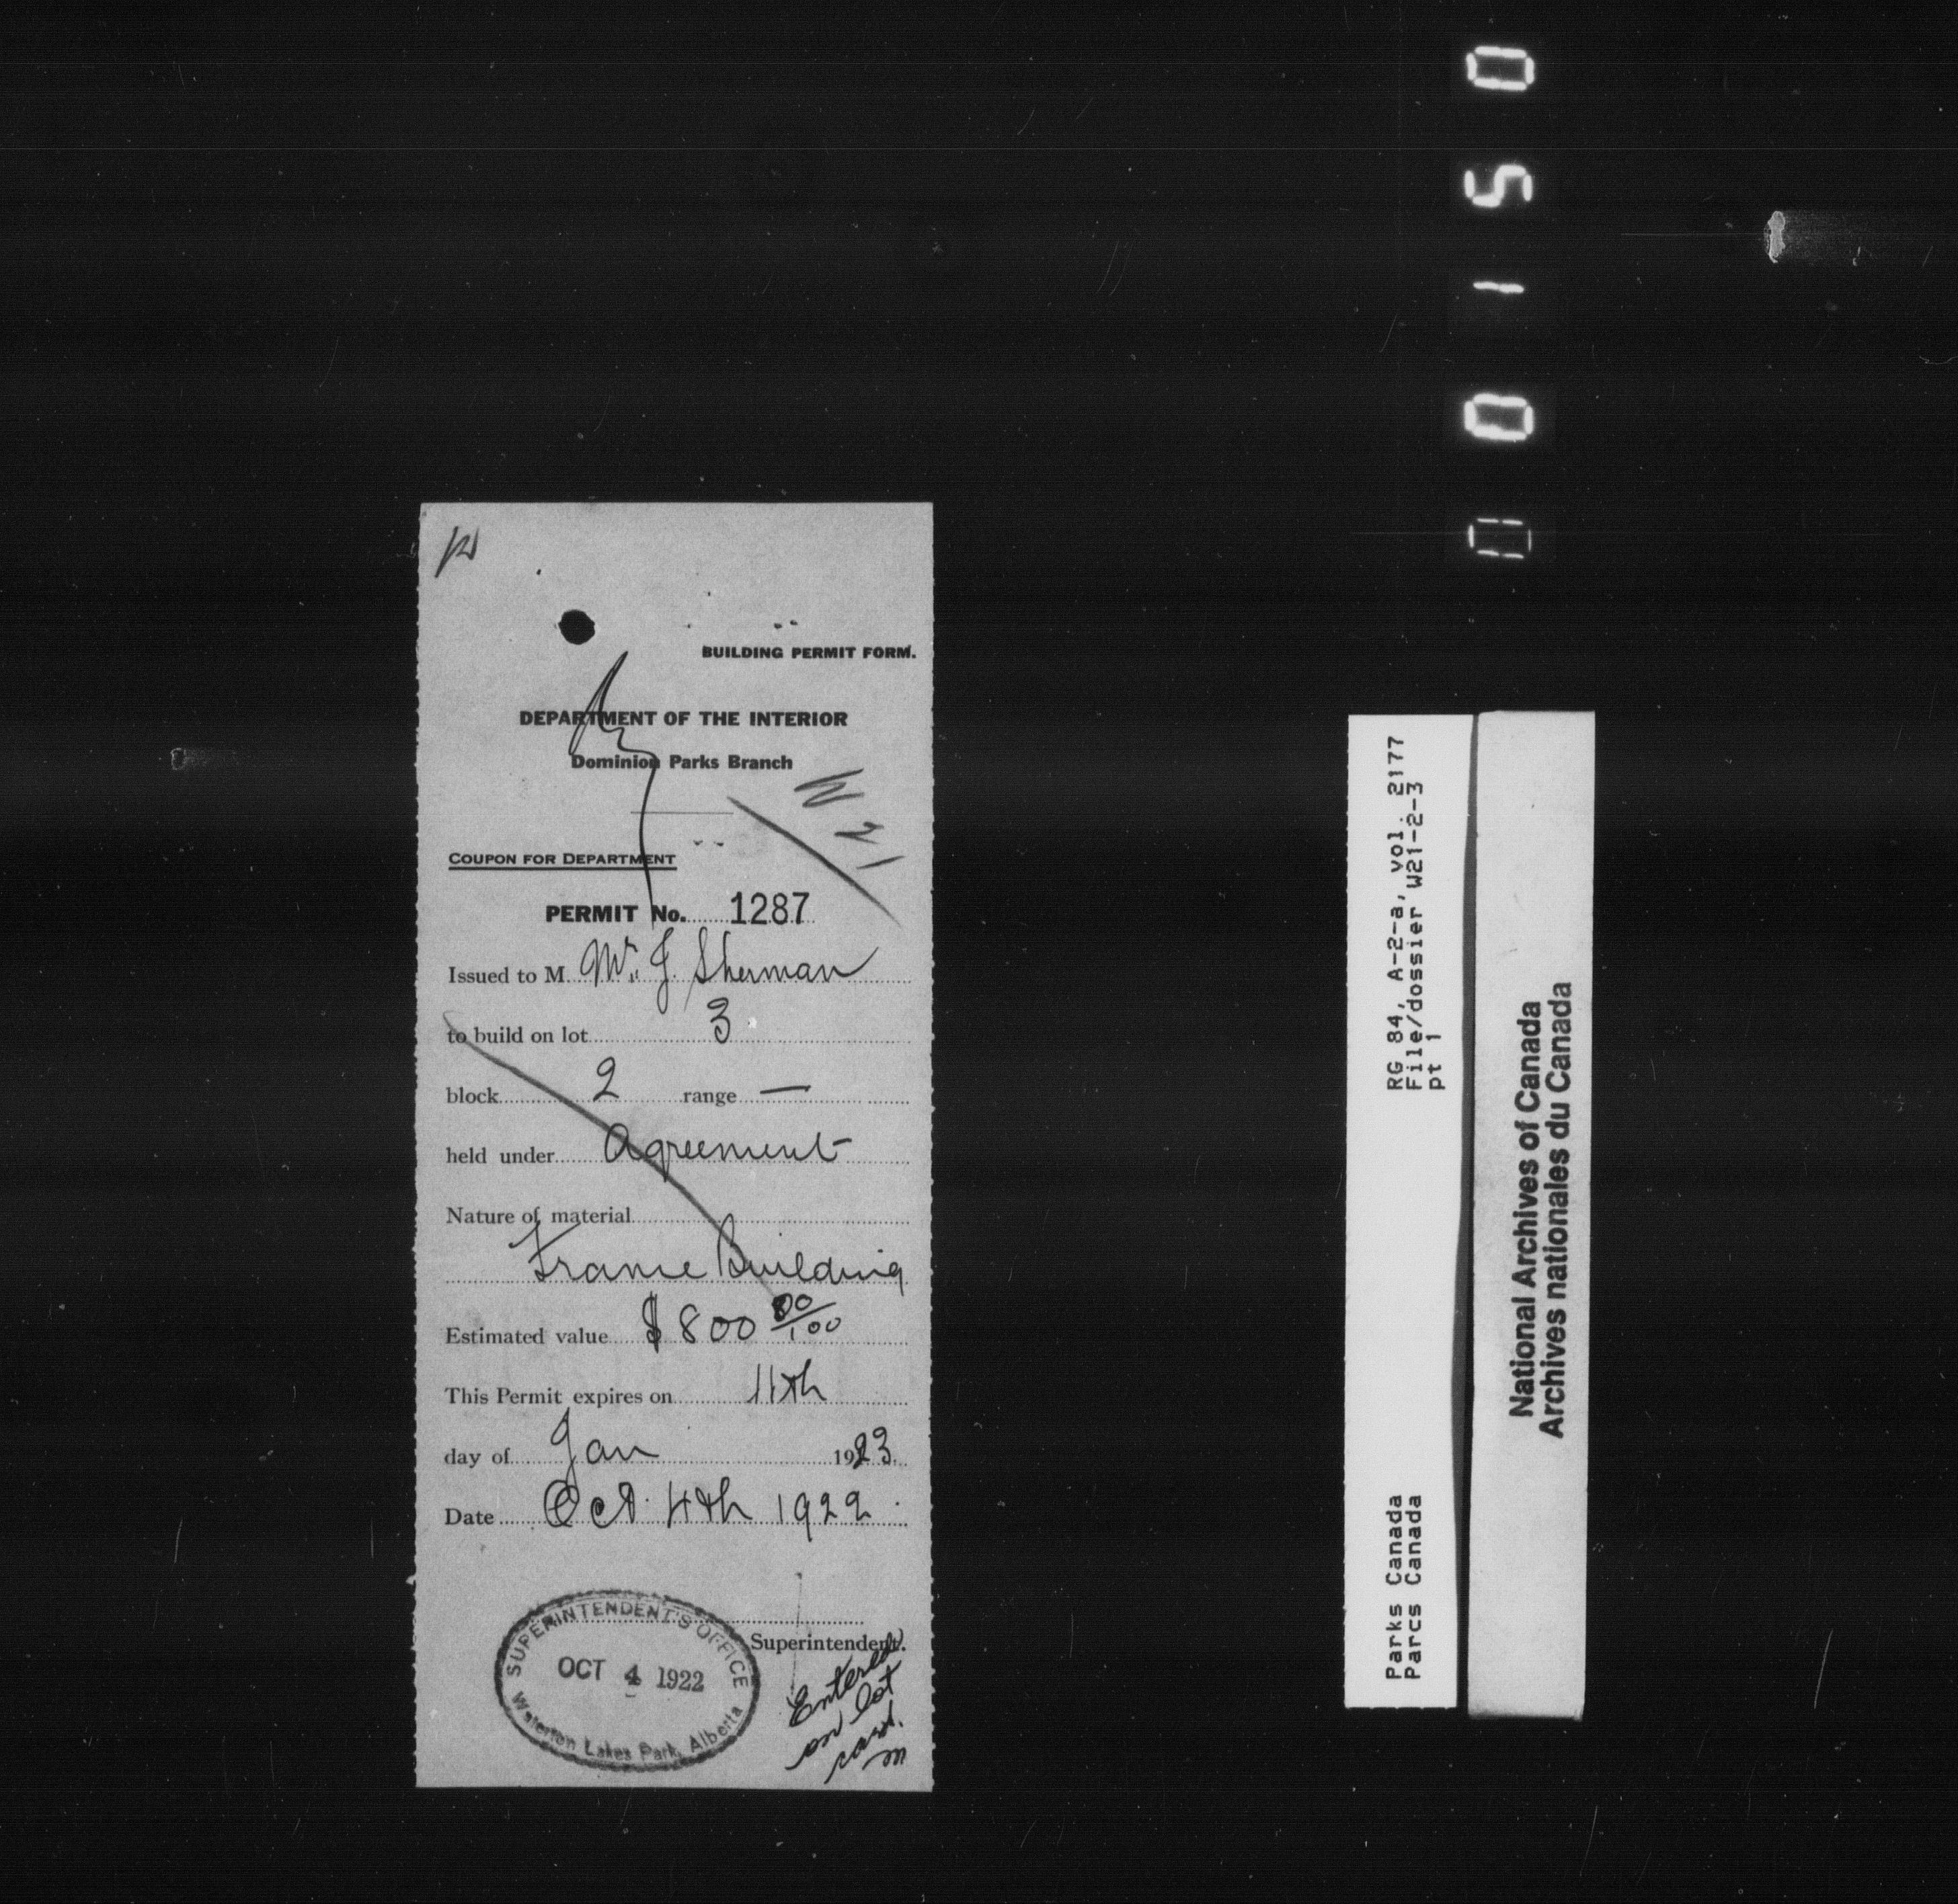 BUILDING PERMIT FORM.
DEPARTMENT OF THE INTERIOR
Dominion Parks Branch
W 21
COUPON FOR DEPARTMENT
PERMIT No. 1287
Issued to M. Mr. J. Sherman
to build on lot 3
block 2 range —
held under Agreement
Nature of material
Frame Building
Estimated value $800 00/100
This Permit expires on 11th
day of Jan 1923
Date Oct. 4th 1922.
Superintendent.
SUPERINTENDENT'S OFFICE
OCT 4 1922
Waterton Lakes Park, Alberta
Entered
on lot
card.
m
0 5 1 0 0
RG 84, A-2-a, vol. 2177
File/dossier W21-2-3
pt 1
Parks Canada
Parcs Canada
National Archives of Canada
Archives nationales du Canada